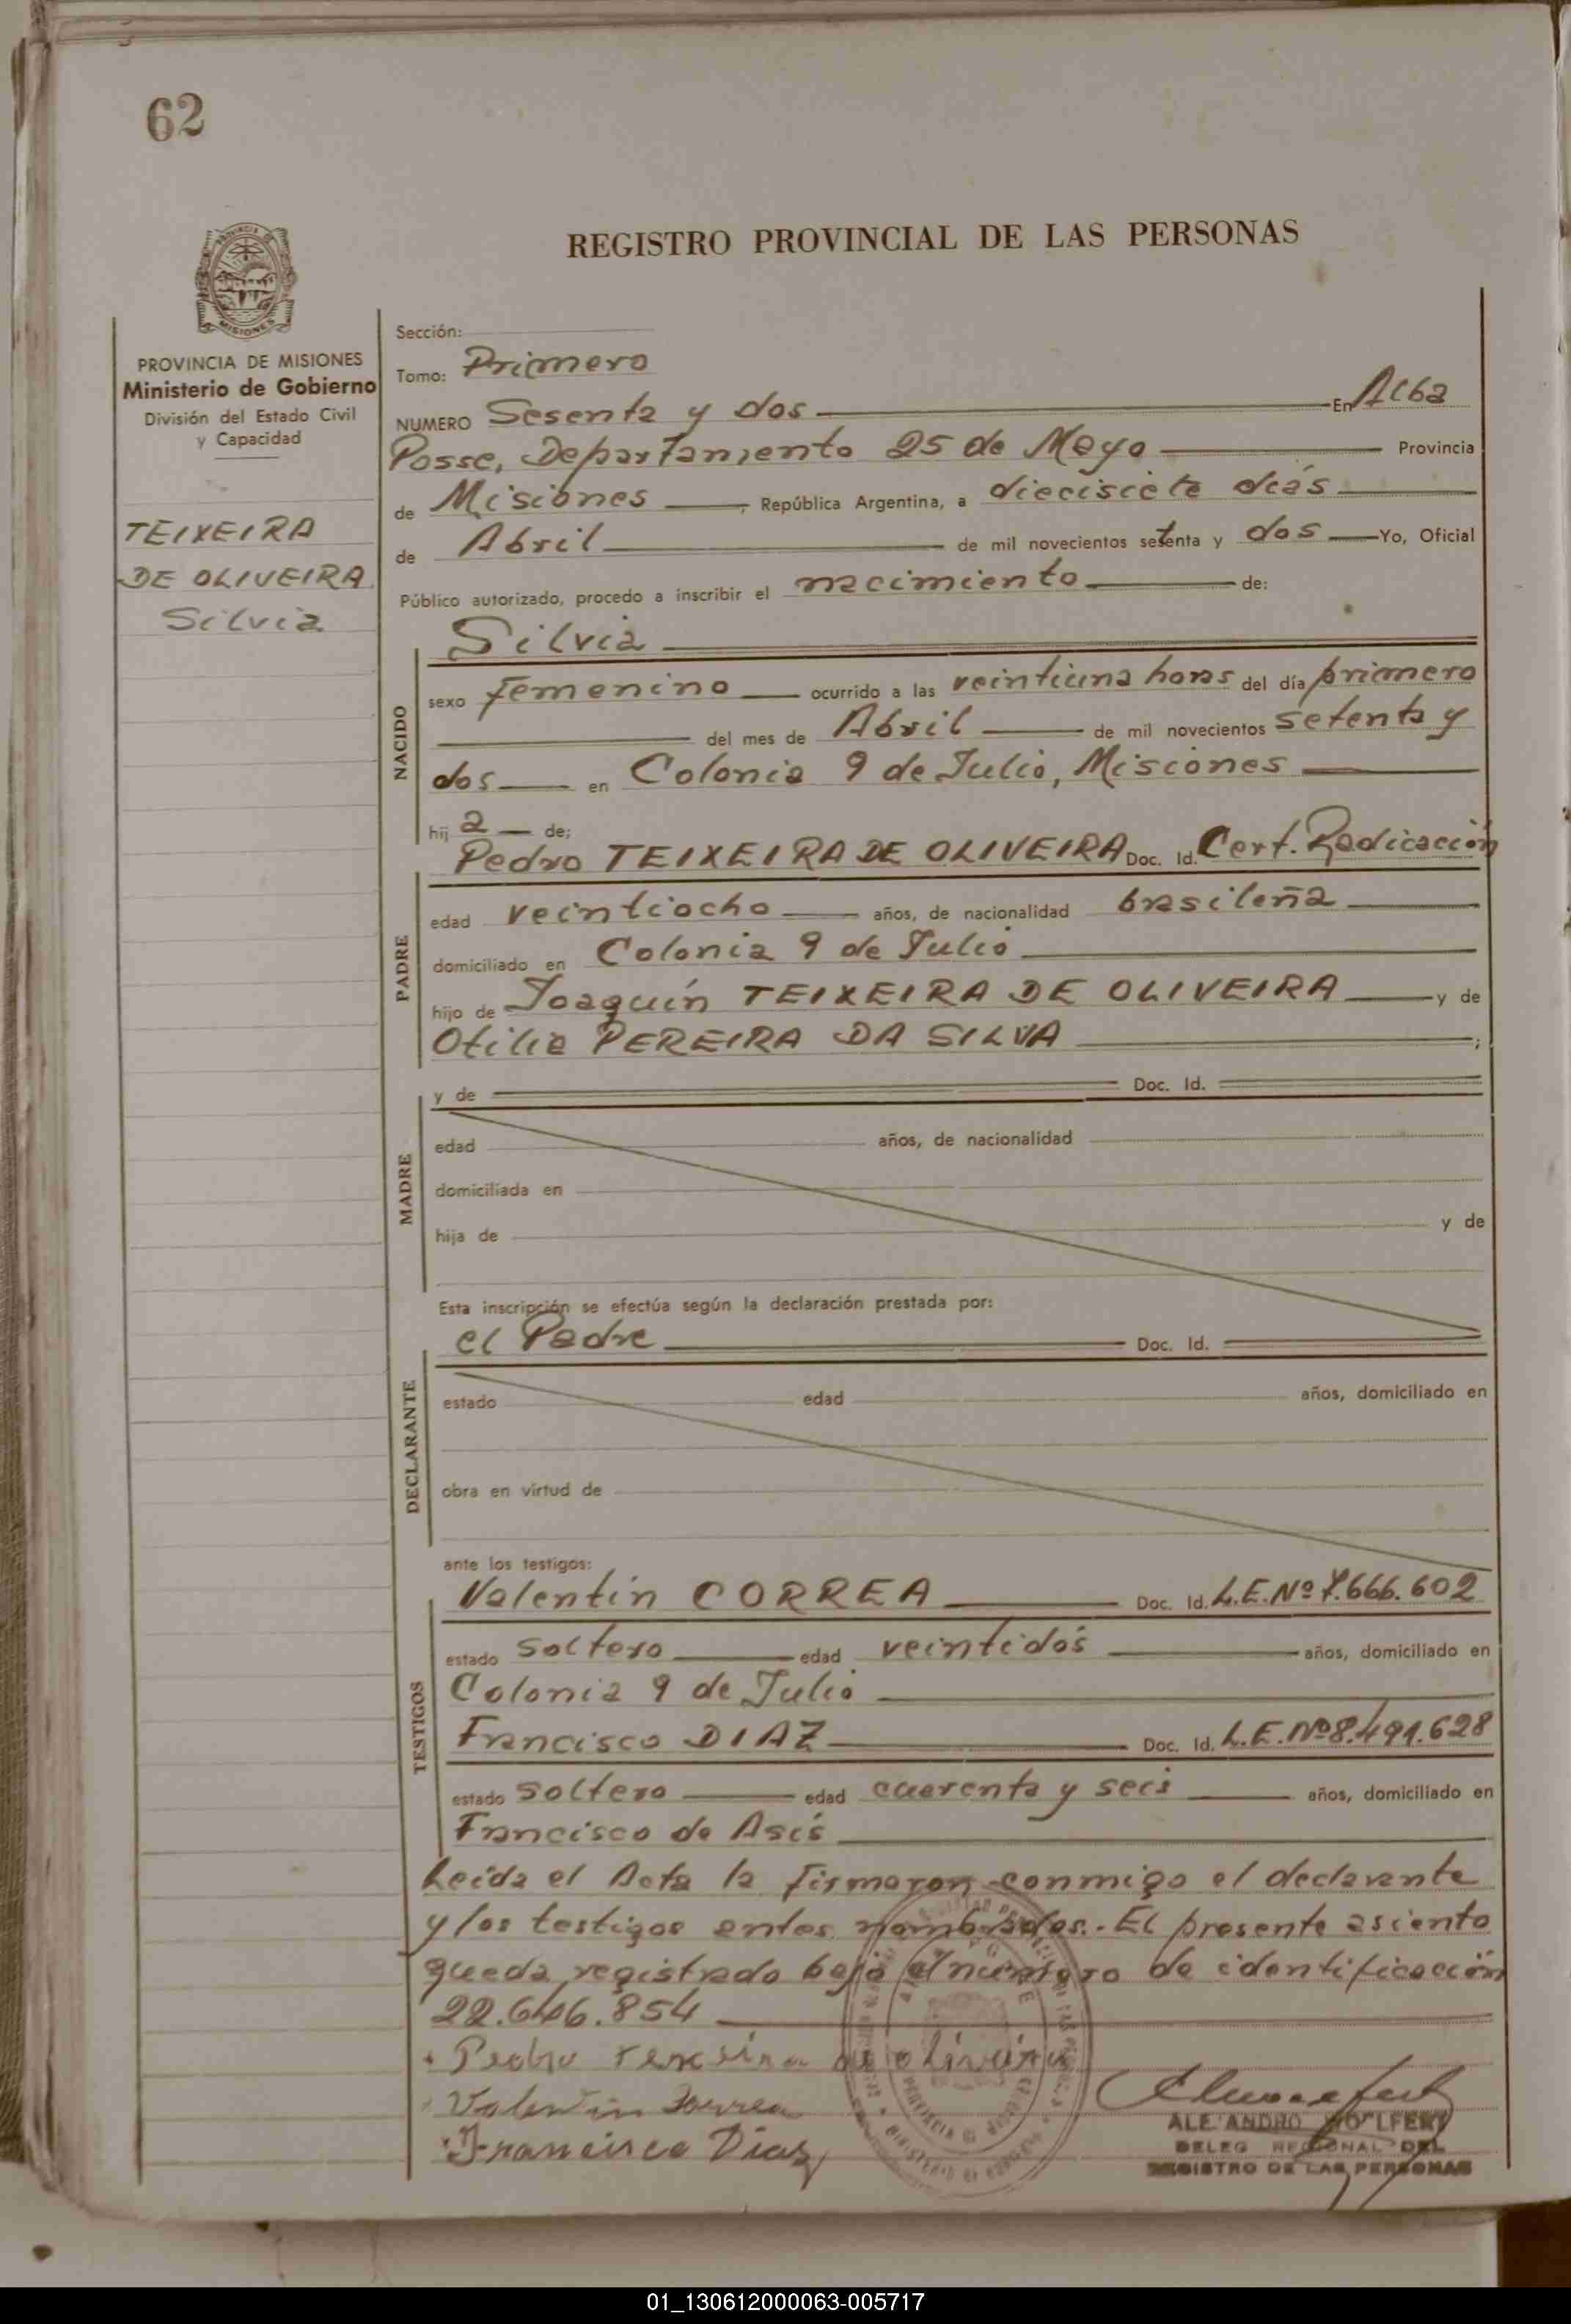 62
REGISTRO PROVINCIAL DE LAS PERSONAS
MISIONES
PROVINCIA DE MISIONES
Ministerio de Gobierno
División del Estado Civil
y Capacidad
TEIXEIRA
DE OLIVEIRA
Silvia
Sección:
Tomo: Primero
NUMERO Sesenta y dos En Alba
Posse, Departamento 25 de Mayo Provincia
de Misiones, República Argentina, a diecisiete días
de Abril de mil novecientos setenta y dos Yo, Oficial
Público autorizado, procedo a inscribir el nacimiento de:
Silvia
NACIDO
sexo femenino ocurrido a las veintiuna horas del día primero
del mes de Abril de mil novecientos setenta y
dos en Colonia 9 de Julio, Misiones
hij a de;
Pedro TEIXEIRA DE OLIVEIRA Doc. Id. Cert. Radicación
PADRE
edad veintiocho años, de nacionalidad brasileña
domiciliado en Colonia 9 de Julio
hijo de Joaquín TEIXEIRA DE OLIVEIRA y de
Otilia PEREIRA DA SILVA ;
y de Doc. Id.
MADRE
edad años, de nacionalidad
domiciliada en
hija de y de
Esta inscripción se efectúa según la declaración prestada por:
el Padre Doc. Id.
DECLARANTE
estado edad años, domiciliado en
obra en virtud de
ante los testigos:
Valentín CORREA Doc. Id. L.E.Nº 7.666.602
TESTIGOS
estado soltero edad veintidós años, domiciliado en
Colonia 9 de Julio
Francisco DIAZ Doc. Id. L.E.Nº8.491.628
estado soltero edad cuarenta y seis años, domiciliado en
Francisco de Asís
Leída el Acta la firmaron conmigo el declarante
y los testigos antes nombrados.- El presente asiento
queda registrado bajo el número de identificación
22.646.854
Pedro Teixeira de oliveira
Valentin Correa
Francisco Diaz
DELEG REGIONAL DEL
REGISTRO DE LAS PERSONAS
01_130612000063-005717